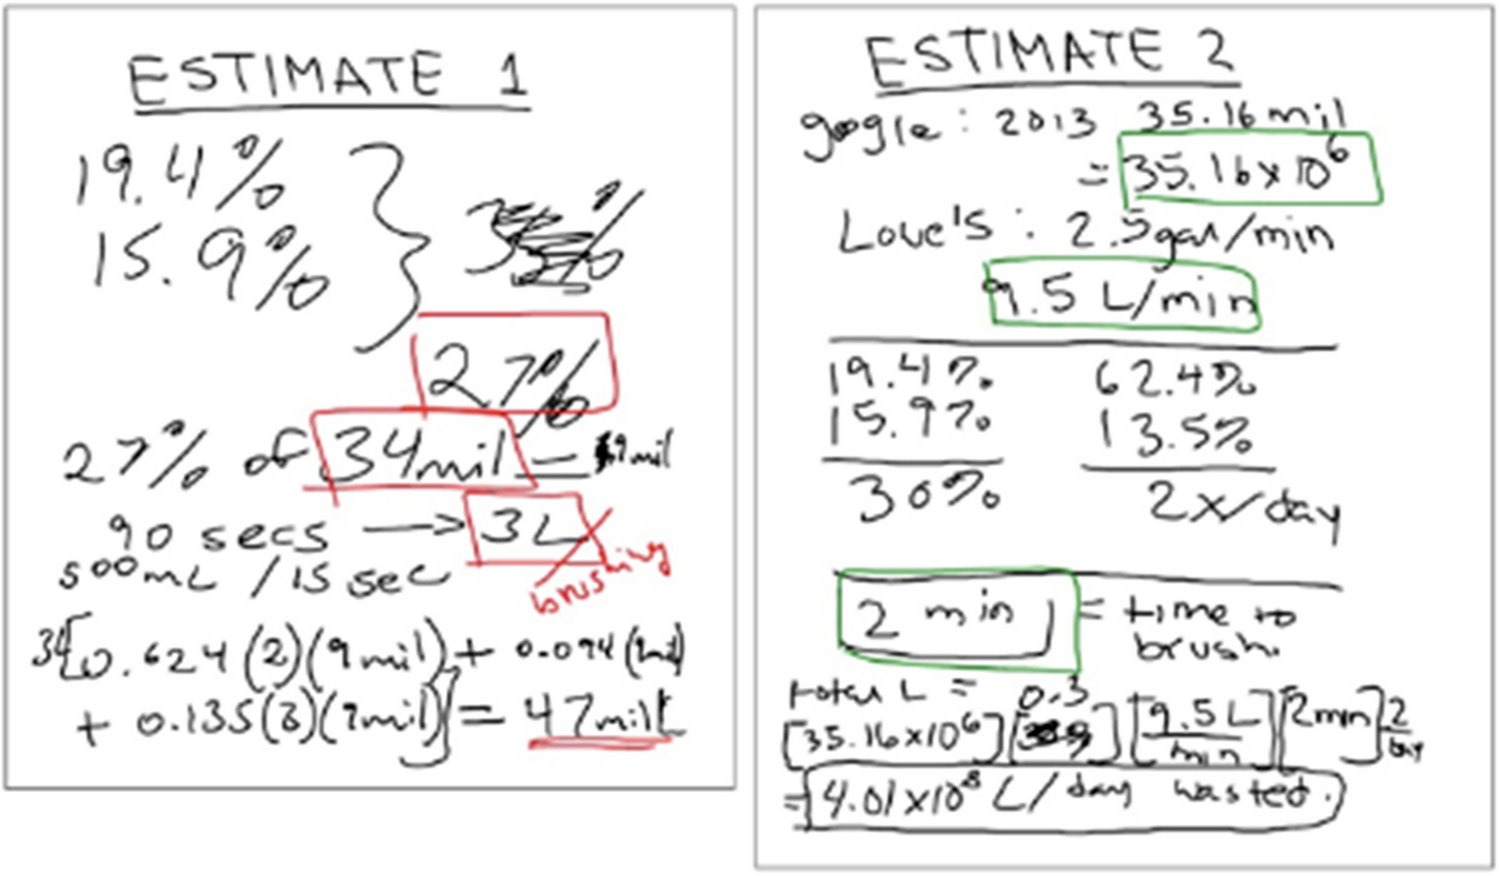 ESTIMATE 1
19.4%
15.9%
27%
27% of 34mil = 9mil
90 secs → 3L
brushing
500mL / 15 sec
34[0.624(2)(9mil) + 0.094(9mil)
+ 0.135(3)(9mil)] = 47milL
ESTIMATE 2
google: 2013 35.16mil
= 35.16x10⁶
Love's: 2.5gal/min
9.5 L/min
19.4% 62.4%
15.9% 13.5%
30% 2x/day
2 min = time to
brush.
total L = 0.3
[35.16x10⁶][ ][9.5L/min][2min]2/day
= 4.01x10⁸ L/day wasted.